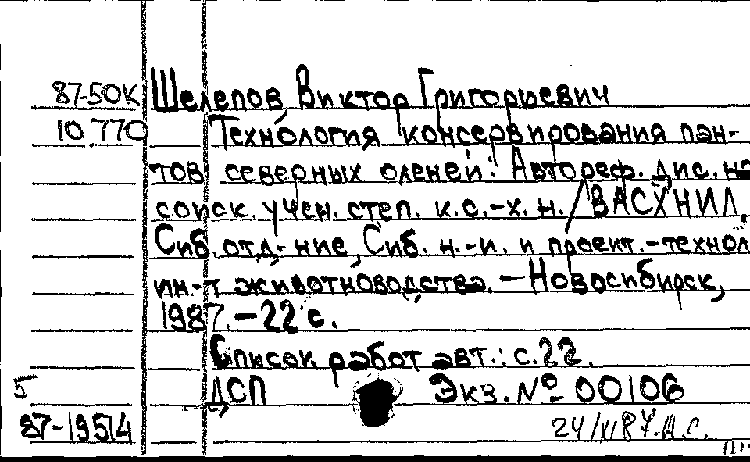 87-50К Шелепов Виктор Григорьевич
10.770 Технология консервирования пан-
тов северных оленей: Автореф. дис. на
соиск. учен. степ. к.с.-х.н. / ВАСХНИЛ
Сиб. отд-ние, Сиб. н.-и. и проект.-технол.
ин-т животноводства. – Новосибирск,
1987. – 22 с.
Список работ авт.: с. 22.
5 ДСП Экз. № 00106
87-19514